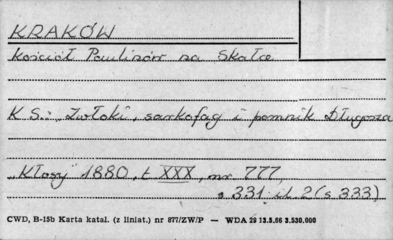 KRAKÓW
Kościół Paulinów na Skałce
K S.: „Zwłoki", sarkofag i pomnik Długosza
„Kłosy" 1880, t XXX, nr. 777,
s 331 il. 2 (s 333)
CWD, B-15b Karta katal. (z liniat.) nr 877/ZW/P — WDA 29 13.5.66 3.530.000